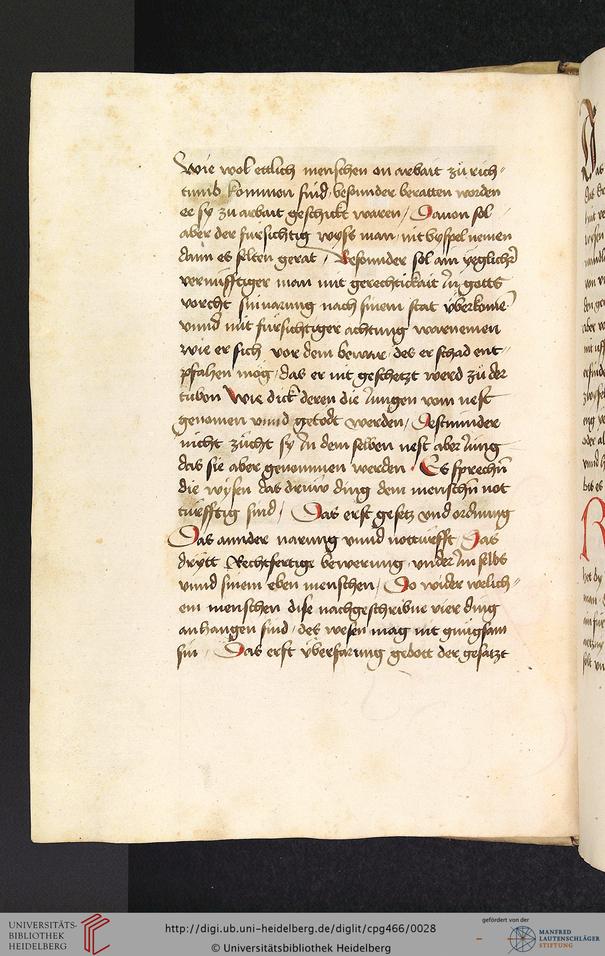 Wie wol ettlich menschen on arbait zů rich-
tumb kommen sind, besunder beratten worden
ee sy zů arbait geschickt waren / Dauon sol
aber der fürsichtig wyss man, nit byspel nemen
dann es selten gerat / Besunder sol ain yeglicher
vernüfftiger man mit gerechtickait in gotts
vorcht sin narung nach sinem stat überkomen
vnnd mit fürsichtiger achtung warnemen
wie er sich vor dem bewar, des er schad ent-
pfahen mög, das er nit geschetzt werd zů der
tubon Wie dick deren die iungen vom nest
genomen vnnd getödt werden, Destminder
nicht zücht sy in dem selben nest aber iung
das sie aber genommen werden Es sprechen
die wysen das drüw ding dem menschen not
türfftig sind / Das erst gesetz vnd ordnung
Das annder narung vnnd notturfft, Das
drytt Rechtfertige bewerung, vnder im selbs
vnnd sinem eben menschen, Do wider welich-
em menschen dise nachgeschribne vier ding
anhangen sind, des wesen mag nit gnůgsam
sin, Das erst überfarung gebott der gesatzt
UNIVERSITÄTS-
BIBLIOTHEK
HEIDELBERG
http://digi.ub.uni-heidelberg.de/diglit/cpg466/0028
© Universitätsbibliothek Heidelberg
gefördert von der
MANFRED
LAUTENSCHLÄGER
STIFTUNG